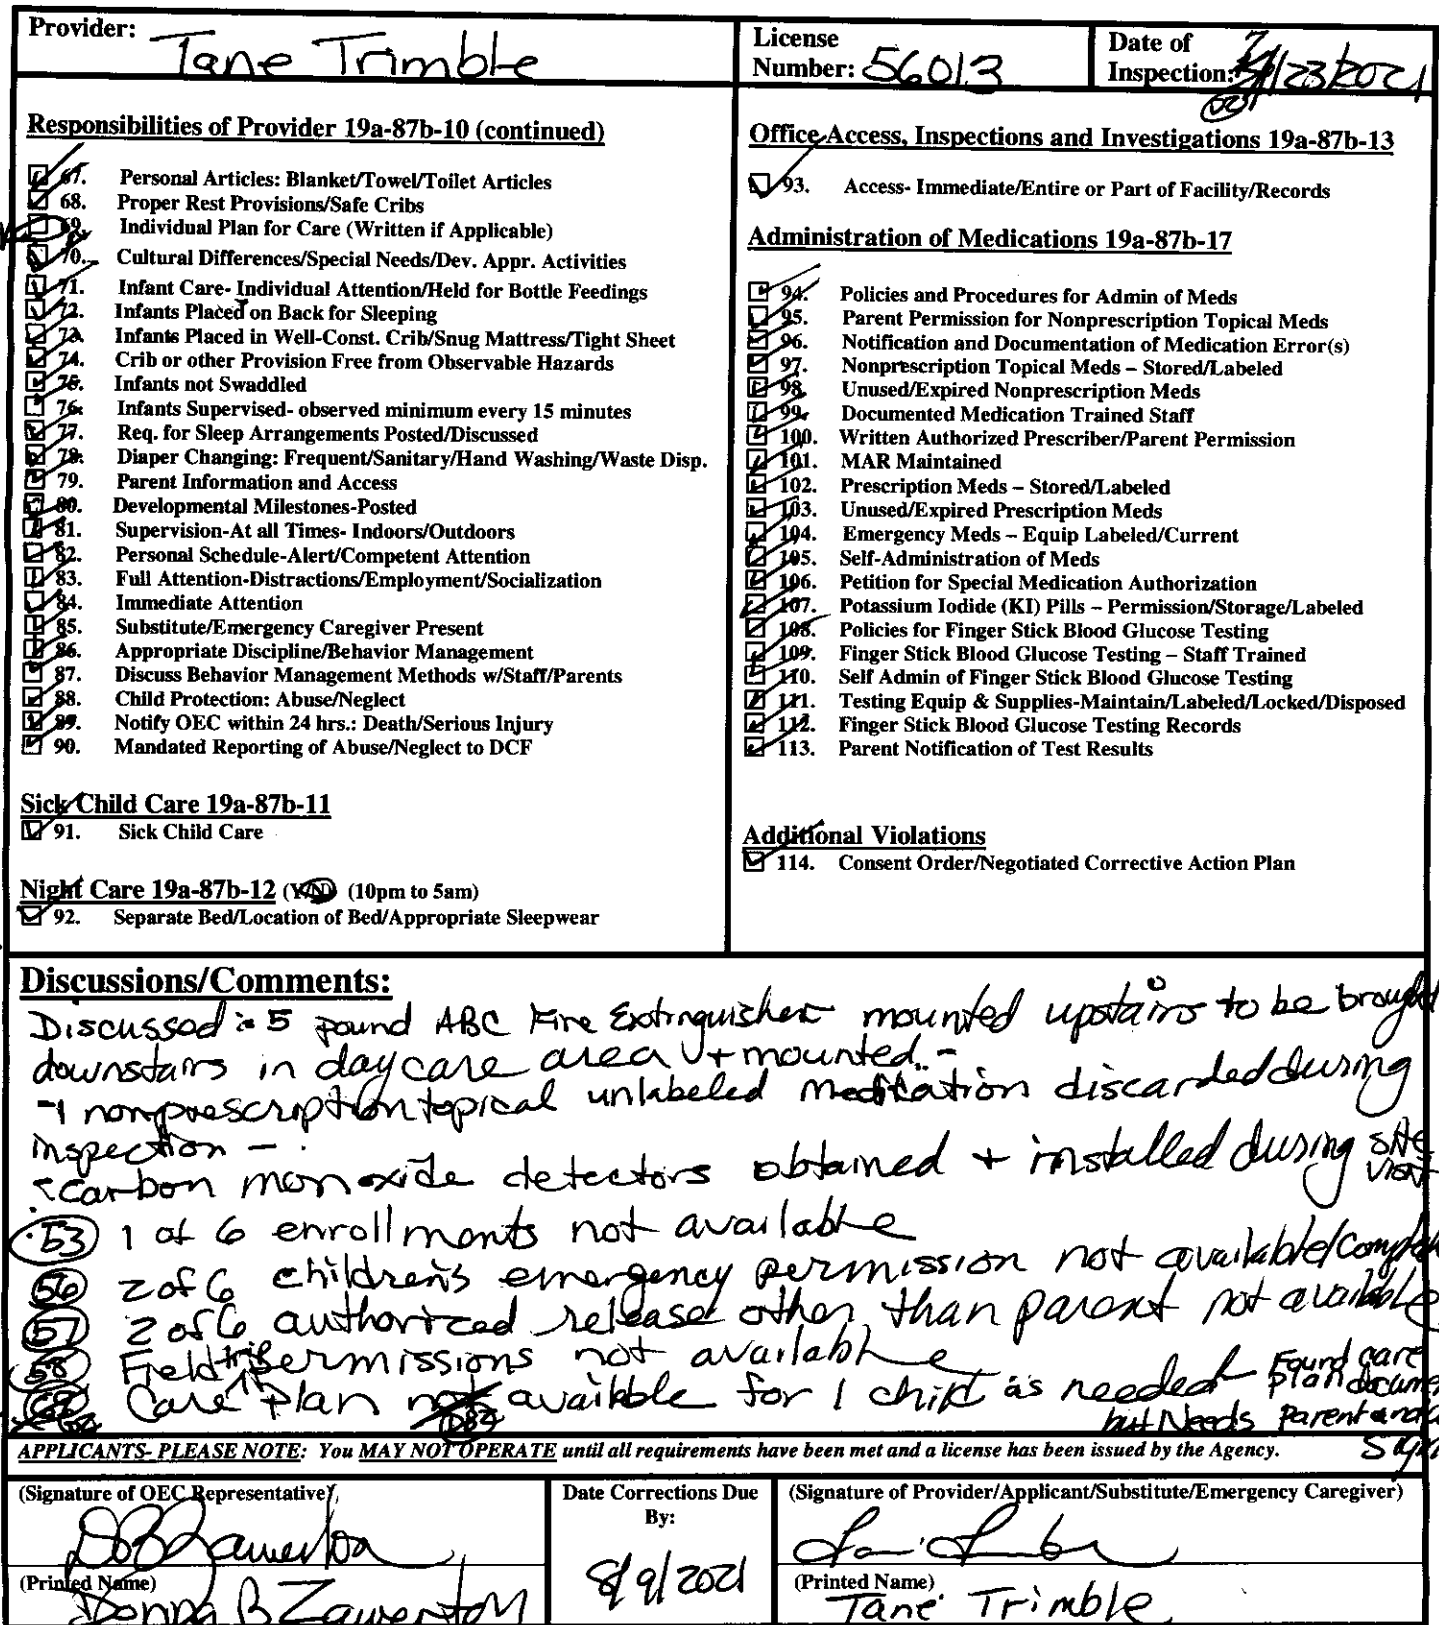 Provider: Tane Trimble
License Number: 56013
Date of Inspection: 7/23/2021
Responsibilities of Provider 19a-87b-10 (continued)
67. Personal Articles: Blanket/Towel/Toilet Articles
68. Proper Rest Provisions/Safe Cribs
69. Individual Plan for Care (Written if Applicable)
70. Cultural Differences/Special Needs/Dev. Appr. Activities
71. Infant Care- Individual Attention/Held for Bottle Feedings
72. Infants Placed on Back for Sleeping
73. Infants Placed in Well-Const. Crib/Snug Mattress/Tight Sheet
74. Crib or other Provision Free from Observable Hazards
75. Infants not Swaddled
76. Infants Supervised- observed minimum every 15 minutes
77. Req. for Sleep Arrangements Posted/Discussed
78. Diaper Changing: Frequent/Sanitary/Hand Washing/Waste Disp.
79. Parent Information and Access
80. Developmental Milestones-Posted
81. Supervision-At all Times- Indoors/Outdoors
82. Personal Schedule-Alert/Competent Attention
83. Full Attention-Distractions/Employment/Socialization
84. Immediate Attention
85. Substitute/Emergency Caregiver Present
86. Appropriate Discipline/Behavior Management
87. Discuss Behavior Management Methods w/Staff/Parents
88. Child Protection: Abuse/Neglect
89. Notify OEC within 24 hrs.: Death/Serious Injury
90. Mandated Reporting of Abuse/Neglect to DCF
Sick Child Care 19a-87b-11
91. Sick Child Care
Night Care 19a-87b-12 (Y/N) (10pm to 5am)
92. Separate Bed/Location of Bed/Appropriate Sleepwear
Office Access, Inspections and Investigations 19a-87b-13
93. Access- Immediate/Entire or Part of Facility/Records
Administration of Medications 19a-87b-17
94. Policies and Procedures for Admin of Meds
95. Parent Permission for Nonprescription Topical Meds
96. Notification and Documentation of Medication Error(s)
97. Nonprescription Topical Meds – Stored/Labeled
98. Unused/Expired Nonprescription Meds
99. Documented Medication Trained Staff
100. Written Authorized Prescriber/Parent Permission
101. MAR Maintained
102. Prescription Meds – Stored/Labeled
103. Unused/Expired Prescription Meds
104. Emergency Meds – Equip Labeled/Current
105. Self-Administration of Meds
106. Petition for Special Medication Authorization
107. Potassium Iodide (KI) Pills – Permission/Storage/Labeled
108. Policies for Finger Stick Blood Glucose Testing
109. Finger Stick Blood Glucose Testing – Staff Trained
110. Self Admin of Finger Stick Blood Glucose Testing
111. Testing Equip & Supplies-Maintain/Labeled/Locked/Disposed
112. Finger Stick Blood Glucose Testing Records
113. Parent Notification of Test Results
Additional Violations
114. Consent Order/Negotiated Corrective Action Plan
Discussions/Comments:
Discussed: 5 pound ABC Fire Extinguisher mounted upstairs to be brought
downstairs in daycare area + mounted.-
-1 nonprescription topical unlabeled medication discarded during
inspection -
carbon monoxide detectors obtained + installed during site visit
53 1 of 6 enrollments not available
56 2 of 6 children's emergency permission not available/
57 2 of 6 authorized release other than parent not available
58 Field trip permissions not available
69 Care Plan not available for 1 child as needed Found care plan
but Needs Parent
APPLICANTS- PLEASE NOTE: You MAY NOT OPERATE until all requirements have been met and a license has been issued by the Agency.
(Signature of OEC Representative)
(Printed Name)
Donna B
Date Corrections Due By:
8/9/2021
(Signature of Provider/Applicant/Substitute/Emergency Caregiver)
(Printed Name)
Tane Trimble